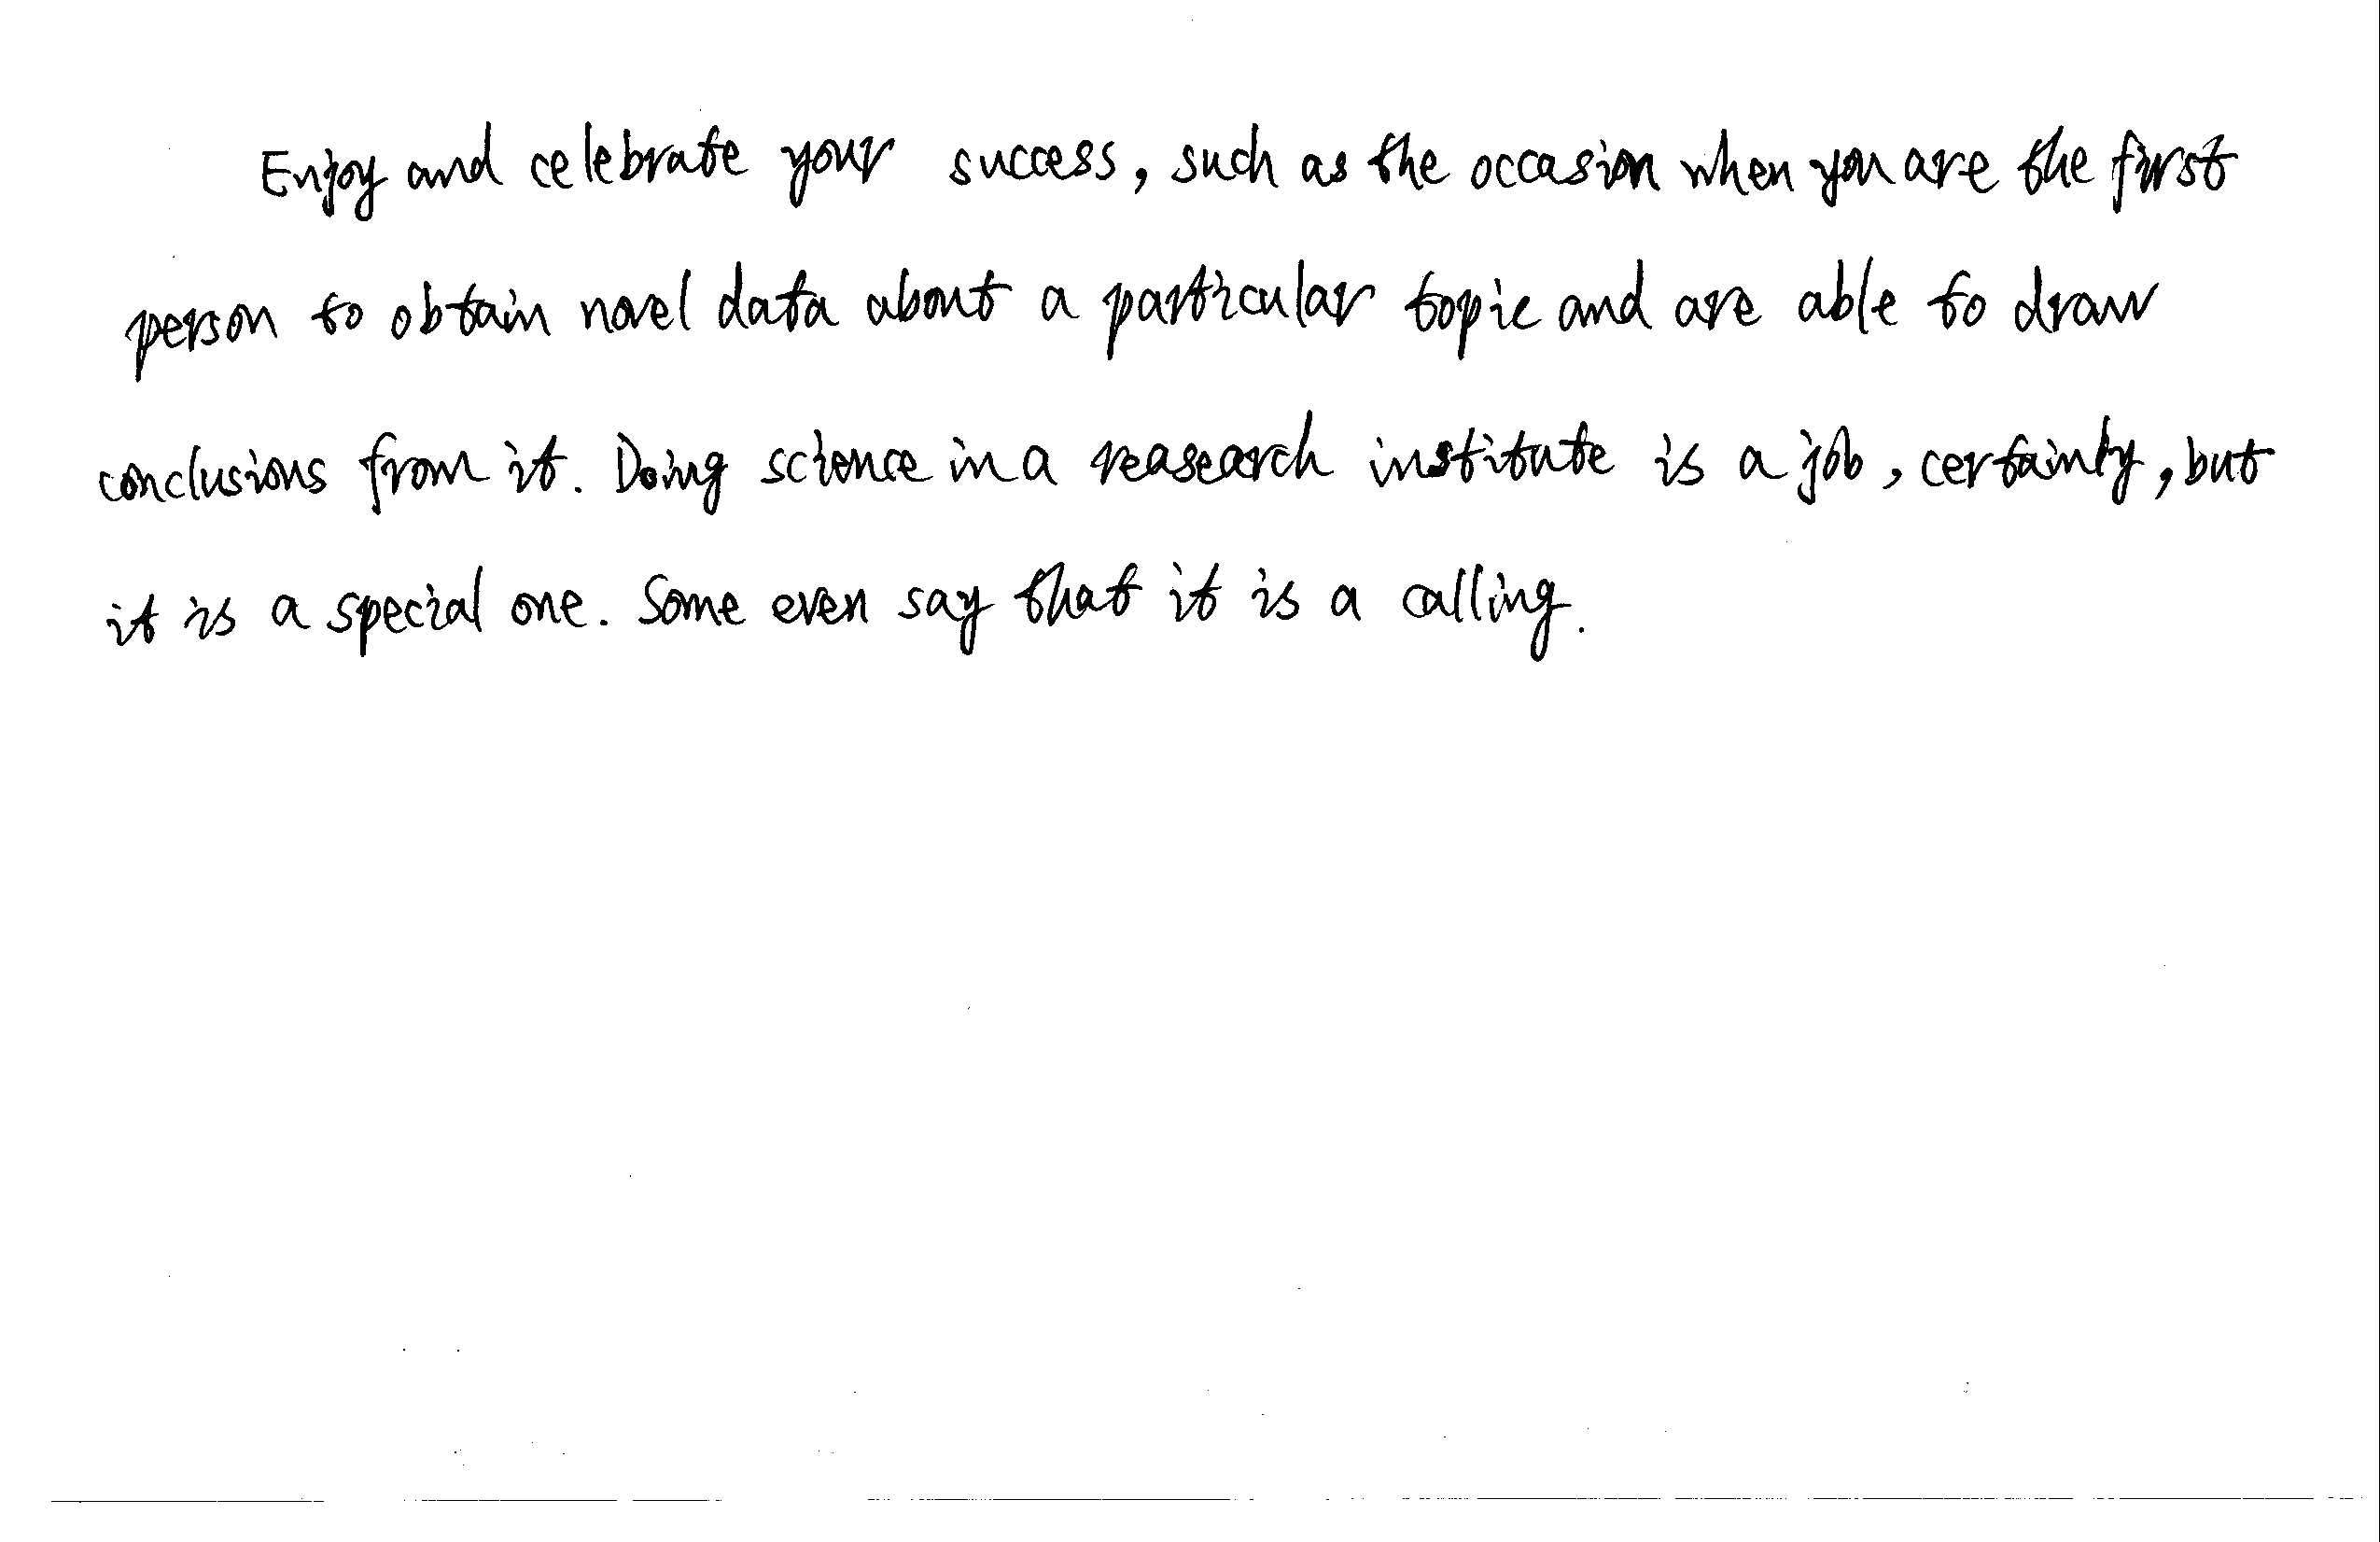 Enjoy and celebrate your success, such as the occasion when you are the first
person to obtain novel data about a particular topic and are able to draw
conclusions from it. Doing science in a reasearch institute is a job, certainly, but
it is a special one. Some even say that it is a calling.